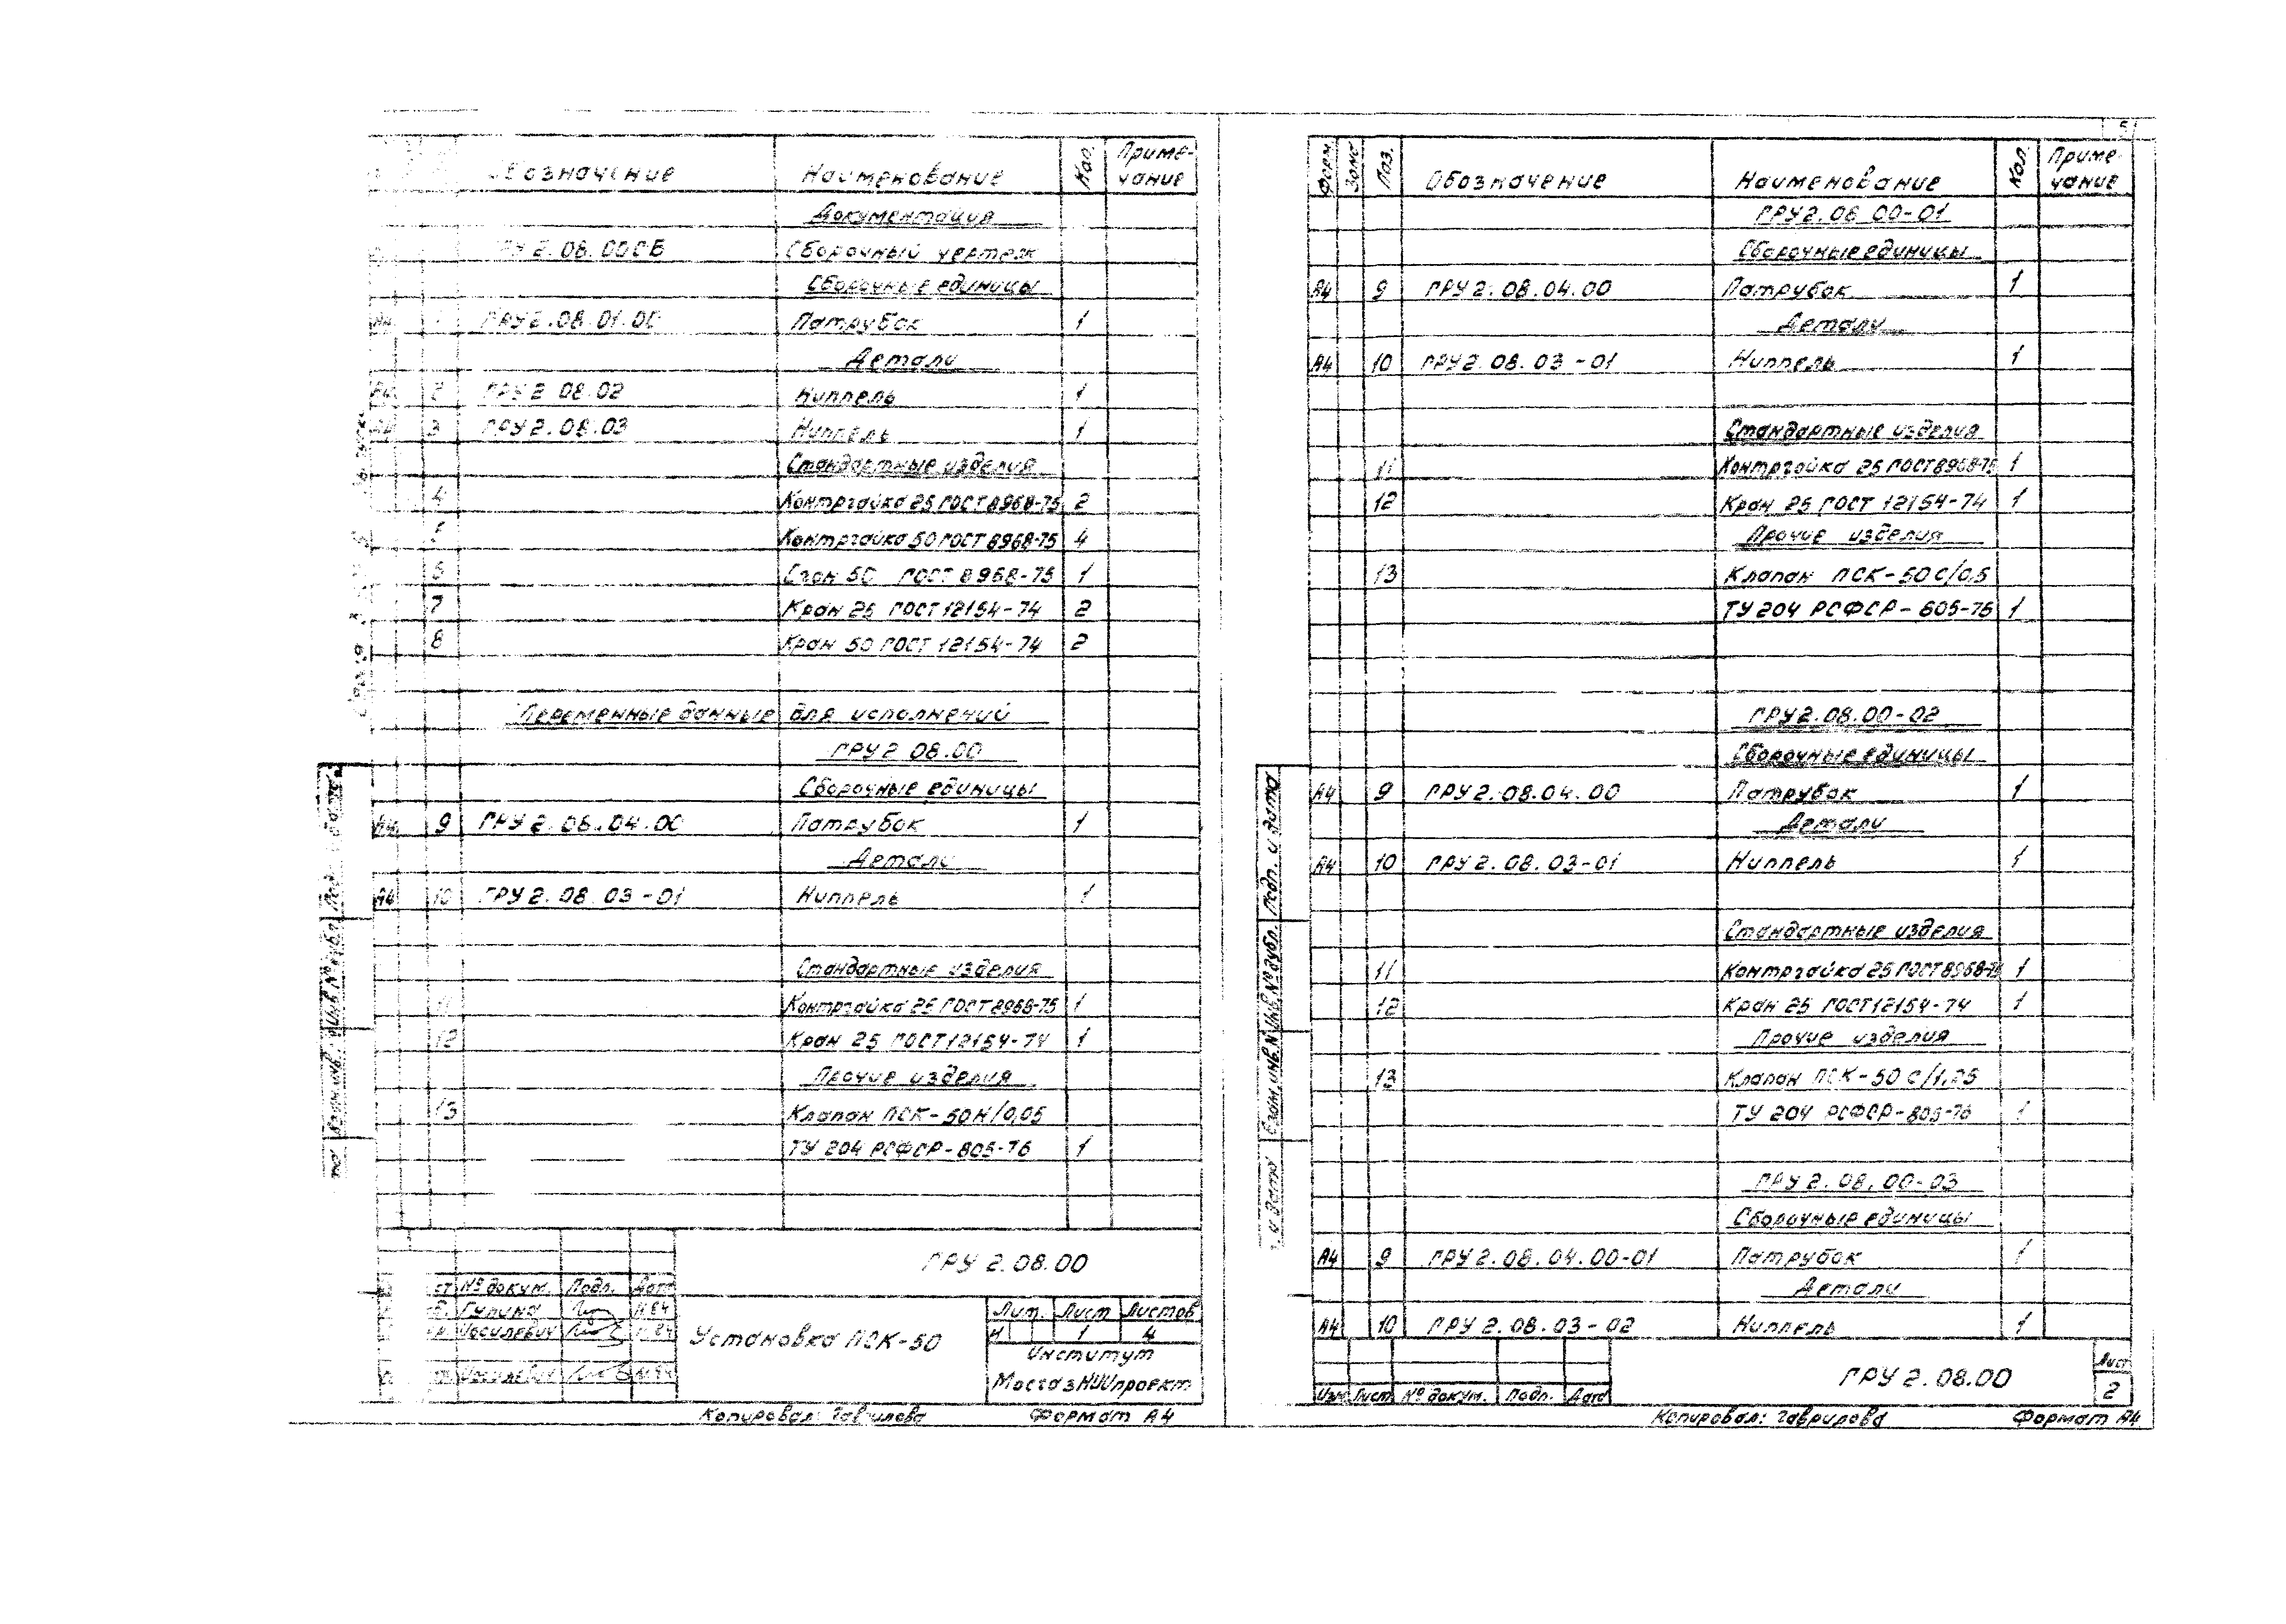 Обозначение Наименование Кол. Приме-
чание
Документация
ГРУ 2.08.00СБ Сборочный чертеж
Сборочные единицы
А4 1 ГРУ 2.08.01.00 Патрубок 1
Детали
А4 2 ГРУ 2 08.02 Ниппель 1
А4 3 ГРУ 2.08.03 Ниппель 1
Стандартные изделия
4 Контргайка 25 ГОСТ 8968-75 2
5 Контргайка 50 ГОСТ 8968-75 4
6 Сгон 50 ГОСТ 8968-75 1
7 Кран 25 ГОСТ 12154-74 2
8 Кран 50 ГОСТ 12154-74 2
Переменные данные для исполнений
ГРУ 2 08.00
Сборочные единицы
А4 9 ГРУ 2.08.04.00 Патрубок 1
Детали
А4 10 ГРУ 2.08.03-01 Ниппель 1
Стандартные изделия
11 Контргайка 25 ГОСТ 8968-75 1
12 Кран 25 ГОСТ 12154-74 1
Прочие изделия
13 Клапан ПСК-50Н/0,05
ТУ 204 РСФСР-805-76 1
Взам. инв. № Инв. № дубл. Подп.
ГРУ 2.08.00
№ докум. Подп. Дата
Гупина 11.84
Иосилевич
Иосилевич
Установка ПСК-50
Лит. Лист Листов
И 1 4
Институт
МосгазНИИпроект
Копировал: Гаврилова Формат А4
5
Форм. Зона Поз. Обозначение Наименование Кол. Приме-
чание
ГРУ 2.08 00-01
Сборочные единицы
А4 9 ГРУ 2.08.04.00 Патрубок 1
Детали
А4 10 ГРУ 2.08.03-01 Ниппель 1
Стандартные изделия
11 Контргайка 25 ГОСТ 8968-75 1
12 Кран 25 ГОСТ 12154-74 1
Прочие изделия
13 Клапан ПСК-50С/0,5
ТУ 204 РСФСР-805-76 1
ГРУ 2.08.00-02
Сборочные единицы
А4 9 ГРУ 2.08.04.00 Патрубок 1
Детали
А4 10 ГРУ 2.08.03-01 Ниппель 1
Стандартные изделия
11 Контргайка 25 ГОСТ 8968-75 1
12 Кран 25 ГОСТ 12154-74 1
Прочие изделия
13 Клапан ПСК-50 С/1,25
ТУ 204 РСФСР-805-76 1
ГРУ 2.08.00-03
Сборочные единицы
А4 9 ГРУ 2.08.04.00-01 Патрубок 1
Детали
А4 10 ГРУ 2.08.03-02 Ниппель 1
и дата Взам. инв. № Инв. № дубл. Подп. и дата
Изм Лист № докум. Подп. Дата
ГРУ 2.08.00
Лист
2
Копировал: Гаврилова Формат А4